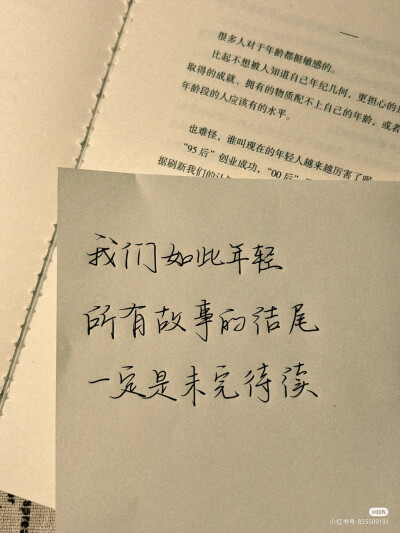 很多人对于年龄都挺敏感的。
比起不想被人知自己年纪几何，更担心的是
取得的成就、拥有的物质配不上自己的年龄，或者
年龄段的人应该有的水平。
也难怪，谁叫现在的年轻人越来越厉害了呢
“95后”创业成功，“00后”
据刷新我们的认
我们如此年轻
所有故事的结尾
一定是未完待读
小红书
小红书号:855509191